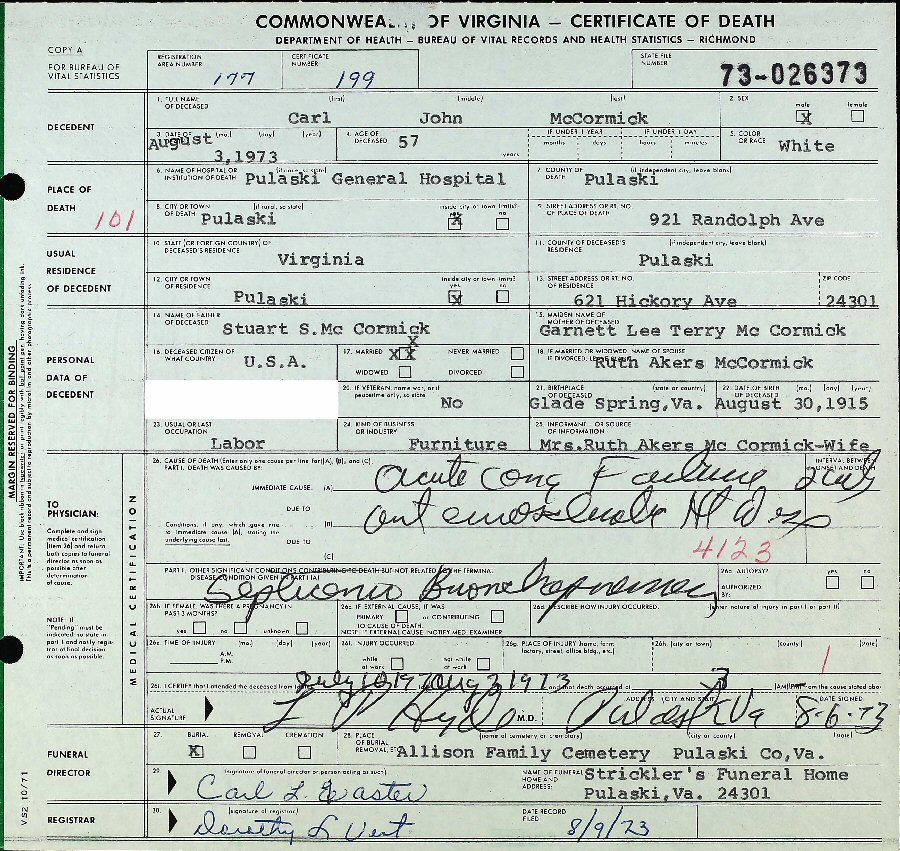 COMMONWEAL OF VIRGINIA — CERTIFICATE OF DEATH
DEPARTMENT OF HEALTH — BUREAU OF VITAL RECORDS AND HEALTH STATISTICS — RICHMOND
COPY A
FOR BUREAU OF VITAL STATISTICS
REGISTRATION AREA NUMBER 177
CERTIFICATE NUMBER 199
STATE FILE NUMBER 73-026373
DECEDENT
1. FULL NAME OF DECEASED (first) (middle) (last)
Carl John McCormick
2. SEX male X female
3. DATE OF (mo.) (day) (year)
August 3,1973
4. AGE OF DECEASED 57 years
IF UNDER 1 YEAR months days
IF UNDER 1 DAY hours minutes
5. COLOR OR RACE White
PLACE OF DEATH 101
6. NAME OF HOSPITAL OR INSTITUTION OF DEATH Pulaski General Hospital
7. COUNTY OF DEATH (if independent city, leave blank) Pulaski
8. CITY OR TOWN OF DEATH (if rural, so state) Pulaski
inside city or town limits? yes X no
9. STREET ADDRESS OR RT. NO. OF PLACE OF DEATH 921 Randolph Ave
USUAL RESIDENCE OF DECEDENT
10. STATE (OR FOREIGN COUNTRY) OF DECEASED'S RESIDENCE Virginia
11. COUNTY OF DECEASED'S RESIDENCE (if independent city, leave blank) Pulaski
12. CITY OR TOWN OF RESIDENCE Pulaski
inside city or town limits? yes X no
13. STREET ADDRESS OR RT. NO. OF RESIDENCE 621 Hickory Ave
ZIP CODE 24301
PERSONAL DATA OF DECEDENT
14. NAME OF FATHER OF DECEASED Stuart S.Mc Cormick
15. MAIDEN NAME OF MOTHER OF DECEASED Garnett Lee Terry Mc Cormick
16. DECEASED CITIZEN OF WHAT COUNTRY U.S.A.
17. MARRIED X X X NEVER MARRIED
WIDOWED DIVORCED
18. IF MARRIED OR WIDOWED NAME OF SPOUSE IF DIVORCED, LEAVE BLANK Ruth Akers McCormick
20. IF VETERAN, name war, or if peacetime only, so state No
21. BIRTHPLACE OF DECEASED (state or country) Glade Spring,Va.
22. DATE OF BIRTH OF DECEASED (mo.) (day) (year) August 30,1915
23. USUAL OR LAST OCCUPATION Labor
24. KIND OF BUSINESS OR INDUSTRY Furniture
25. INFORMANT OR SOURCE OF INFORMATION Mrs.Ruth Akers Mc Cormick-Wife
TO PHYSICIAN:
Complete and sign medical certification (Item 26) and return both copies to funeral director as soon as possible after determination of cause.
NOTE: If "Pending" must be indicated, so state in part I and notify registrar of final decision as soon as possible.
MEDICAL CERTIFICATION
26. CAUSE OF DEATH (Enter only one cause per line for (A), (B), and (C)
PART I. DEATH WAS CAUSED BY:
INTERVAL BETWEEN ONSET AND DEATH
IMMEDIATE CAUSE (A) Acute Cong Failure
DUE TO
Conditions, if any, which gave rise to immediate cause (A), stating the underlying cause last. (B)
DUE TO
(C)
4123
PART II. OTHER SIGNIFICANT CONDITIONS CONTRIBUTING TO DEATH BUT NOT RELATED TO THE TERMINAL DISEASE CONDITION GIVEN IN PART I(A)
26a. AUTOPSY? yes no
AUTHORIZED BY:
26b. IF FEMALE, WAS THERE A PREGNANCY IN PAST 3 MONTHS? yes no unknown
26c. IF EXTERNAL CAUSE, IT WAS PRIMARY or CONTRIBUTING TO CAUSE OF DEATH.
NOTE: IF EXTERNAL CAUSE, NOTIFY MED. EXAMINER
26d. DESCRIBE HOW INJURY OCCURRED. (enter nature of injury in part I or part II)
26e. TIME OF INJURY (mo.) (day) (year) A.M. P.M.
26f. INJURY OCCURRED while at work not while at work
26g. PLACE OF INJURY (home, farm, factory, street, office bldg., etc.)
26h. (city or town) (county) (state)
1
26i. I CERTIFY that I attended the deceased from July 10 1973 Aug 3 1973 and that death occurred at 3 (AM) (PM) from the cause stated above
ACTUAL SIGNATURE M.D.
ADDRESS (CITY AND STATE) Pulaski Va
DATE SIGNED 8-6-73
FUNERAL DIRECTOR
27. BURIAL X REMOVAL CREMATION
28. PLACE OF BURIAL REMOVAL, (name of cemetery or crematory) (city or county) (state)
Allison Family Cemetery Pulaski Co,Va.
29. (signature of funeral director or person acting as such)
Carl L. Easter
NAME OF FUNERAL HOME AND ADDRESS: Strickler's Funeral Home
Pulaski,Va. 24301
REGISTRAR
30. (signature of registrar)
Dorothy L Vest
DATE RECORD FILED 8/9/73
MARGIN RESERVED FOR BINDING
VS2 10/71